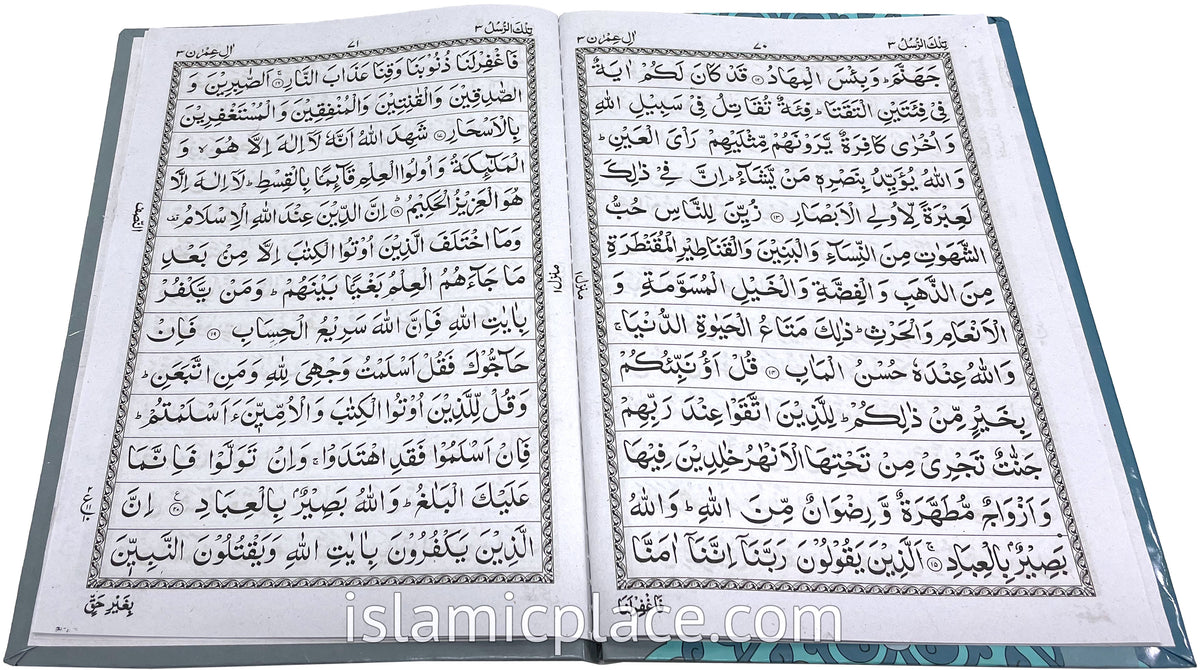 تِلْكَ الرُّسُلُ ٣
٧٠
اٰلِ عِمْرٰن ٣
جَهَنَّمَ ؕ وَبِئْسَ الْمِهَادُ ۝۱۲ قَدْ كَانَ لَكُمْ اٰيَةٌ
فِيْ فِئَتَيْنِ الْتَقَتَا ؕ فِئَةٌ تُقَاتِلُ فِيْ سَبِيْلِ اللّٰهِ
وَاُخْرٰى كَافِرَةٌ يَّرَوْنَهُمْ مِّثْلَيْهِمْ رَاْيَ الْعَيْنِ ؕ
وَاللّٰهُ يُؤَيِّدُ بِنَصْرِهٖ مَنْ يَّشَآءُ ؕ اِنَّ فِيْ ذٰلِكَ
لَعِبْرَةً لِّاُولِي الْاَبْصَارِ ۝۱۳ زُيِّنَ لِلنَّاسِ حُبُّ
الشَّهَوٰتِ مِنَ النِّسَآءِ وَالْبَنِيْنَ وَالْقَنَاطِيْرِ الْمُقَنْطَرَةِ
مِنَ الذَّهَبِ وَالْفِضَّةِ وَالْخَيْلِ الْمُسَوَّمَةِ وَ
الْاَنْعَامِ وَالْحَرْثِ ؕ ذٰلِكَ مَتَاعُ الْحَيٰوةِ الدُّنْيَا ۚ
وَاللّٰهُ عِنْدَهٗ حُسْنُ الْمَاٰبِ ۝۱۴ قُلْ اَؤُنَبِّئُكُمْ
بِخَيْرٍ مِّنْ ذٰلِكُمْ ؕ لِلَّذِيْنَ اتَّقَوْا عِنْدَ رَبِّهِمْ
جَنّٰتٌ تَجْرِيْ مِنْ تَحْتِهَا الْاَنْهٰرُ خٰلِدِيْنَ فِيْهَا
وَاَزْوَاجٌ مُّطَهَّرَةٌ وَّرِضْوَانٌ مِّنَ اللّٰهِ ؕ وَاللّٰهُ
بَصِيْرٌۢ بِالْعِبَادِ ۝۱۵ۚ اَلَّذِيْنَ يَقُوْلُوْنَ رَبَّنَاۤ اِنَّنَاۤ اٰمَنَّا
فَاغْفِرْلَنَا
منزل ۱
تِلْكَ الرُّسُلُ ٣
٧١
اٰلِ عِمْرٰن ٣
فَاغْفِرْلَنَا ذُنُوْبَنَا وَقِنَا عَذَابَ النَّارِ ۝۱۶ۚ اَلصّٰبِرِيْنَ وَ
الصّٰدِقِيْنَ وَالْقٰنِتِيْنَ وَالْمُنْفِقِيْنَ وَالْمُسْتَغْفِرِيْنَ
بِالْاَسْحَارِ ۝۱۷ شَهِدَ اللّٰهُ اَنَّهٗ لَاۤ اِلٰهَ اِلَّا هُوَ ۙ وَ
الْمَلٰٓئِكَةُ وَاُولُوا الْعِلْمِ قَآئِمًۢا بِالْقِسْطِ ؕ لَاۤ اِلٰهَ اِلَّا
هُوَ الْعَزِيْزُ الْحَكِيْمُ ۝۱۸ؕ اِنَّ الدِّيْنَ عِنْدَ اللّٰهِ الْاِسْلَامُ ۟
وَمَا اخْتَلَفَ الَّذِيْنَ اُوْتُوا الْكِتٰبَ اِلَّا مِنْۢ بَعْدِ
مَا جَآءَهُمُ الْعِلْمُ بَغْيًۢا بَيْنَهُمْ ؕ وَمَنْ يَّكْفُرْ
بِاٰيٰتِ اللّٰهِ فَاِنَّ اللّٰهَ سَرِيْعُ الْحِسَابِ ۝۱۹ فَاِنْ
حَآجُّوْكَ فَقُلْ اَسْلَمْتُ وَجْهِيَ لِلّٰهِ وَمَنِ اتَّبَعَنِ ؕ
وَقُلْ لِّلَّذِيْنَ اُوْتُوا الْكِتٰبَ وَالْاُمِّيّٖنَ ءَاَسْلَمْتُمْ ؕ
فَاِنْ اَسْلَمُوْا فَقَدِ اهْتَدَوْا ۚ وَاِنْ تَوَلَّوْا فَاِنَّمَا
عَلَيْكَ الْبَلٰغُ ؕ وَاللّٰهُ بَصِيْرٌۢ بِالْعِبَادِ ۝۲۰ۧ اِنَّ
الَّذِيْنَ يَكْفُرُوْنَ بِاٰيٰتِ اللّٰهِ وَيَقْتُلُوْنَ النَّبِيّٖنَ
بِغَيْرِ حَقٍّ
منزل ۱
النصف
islamicplace.com